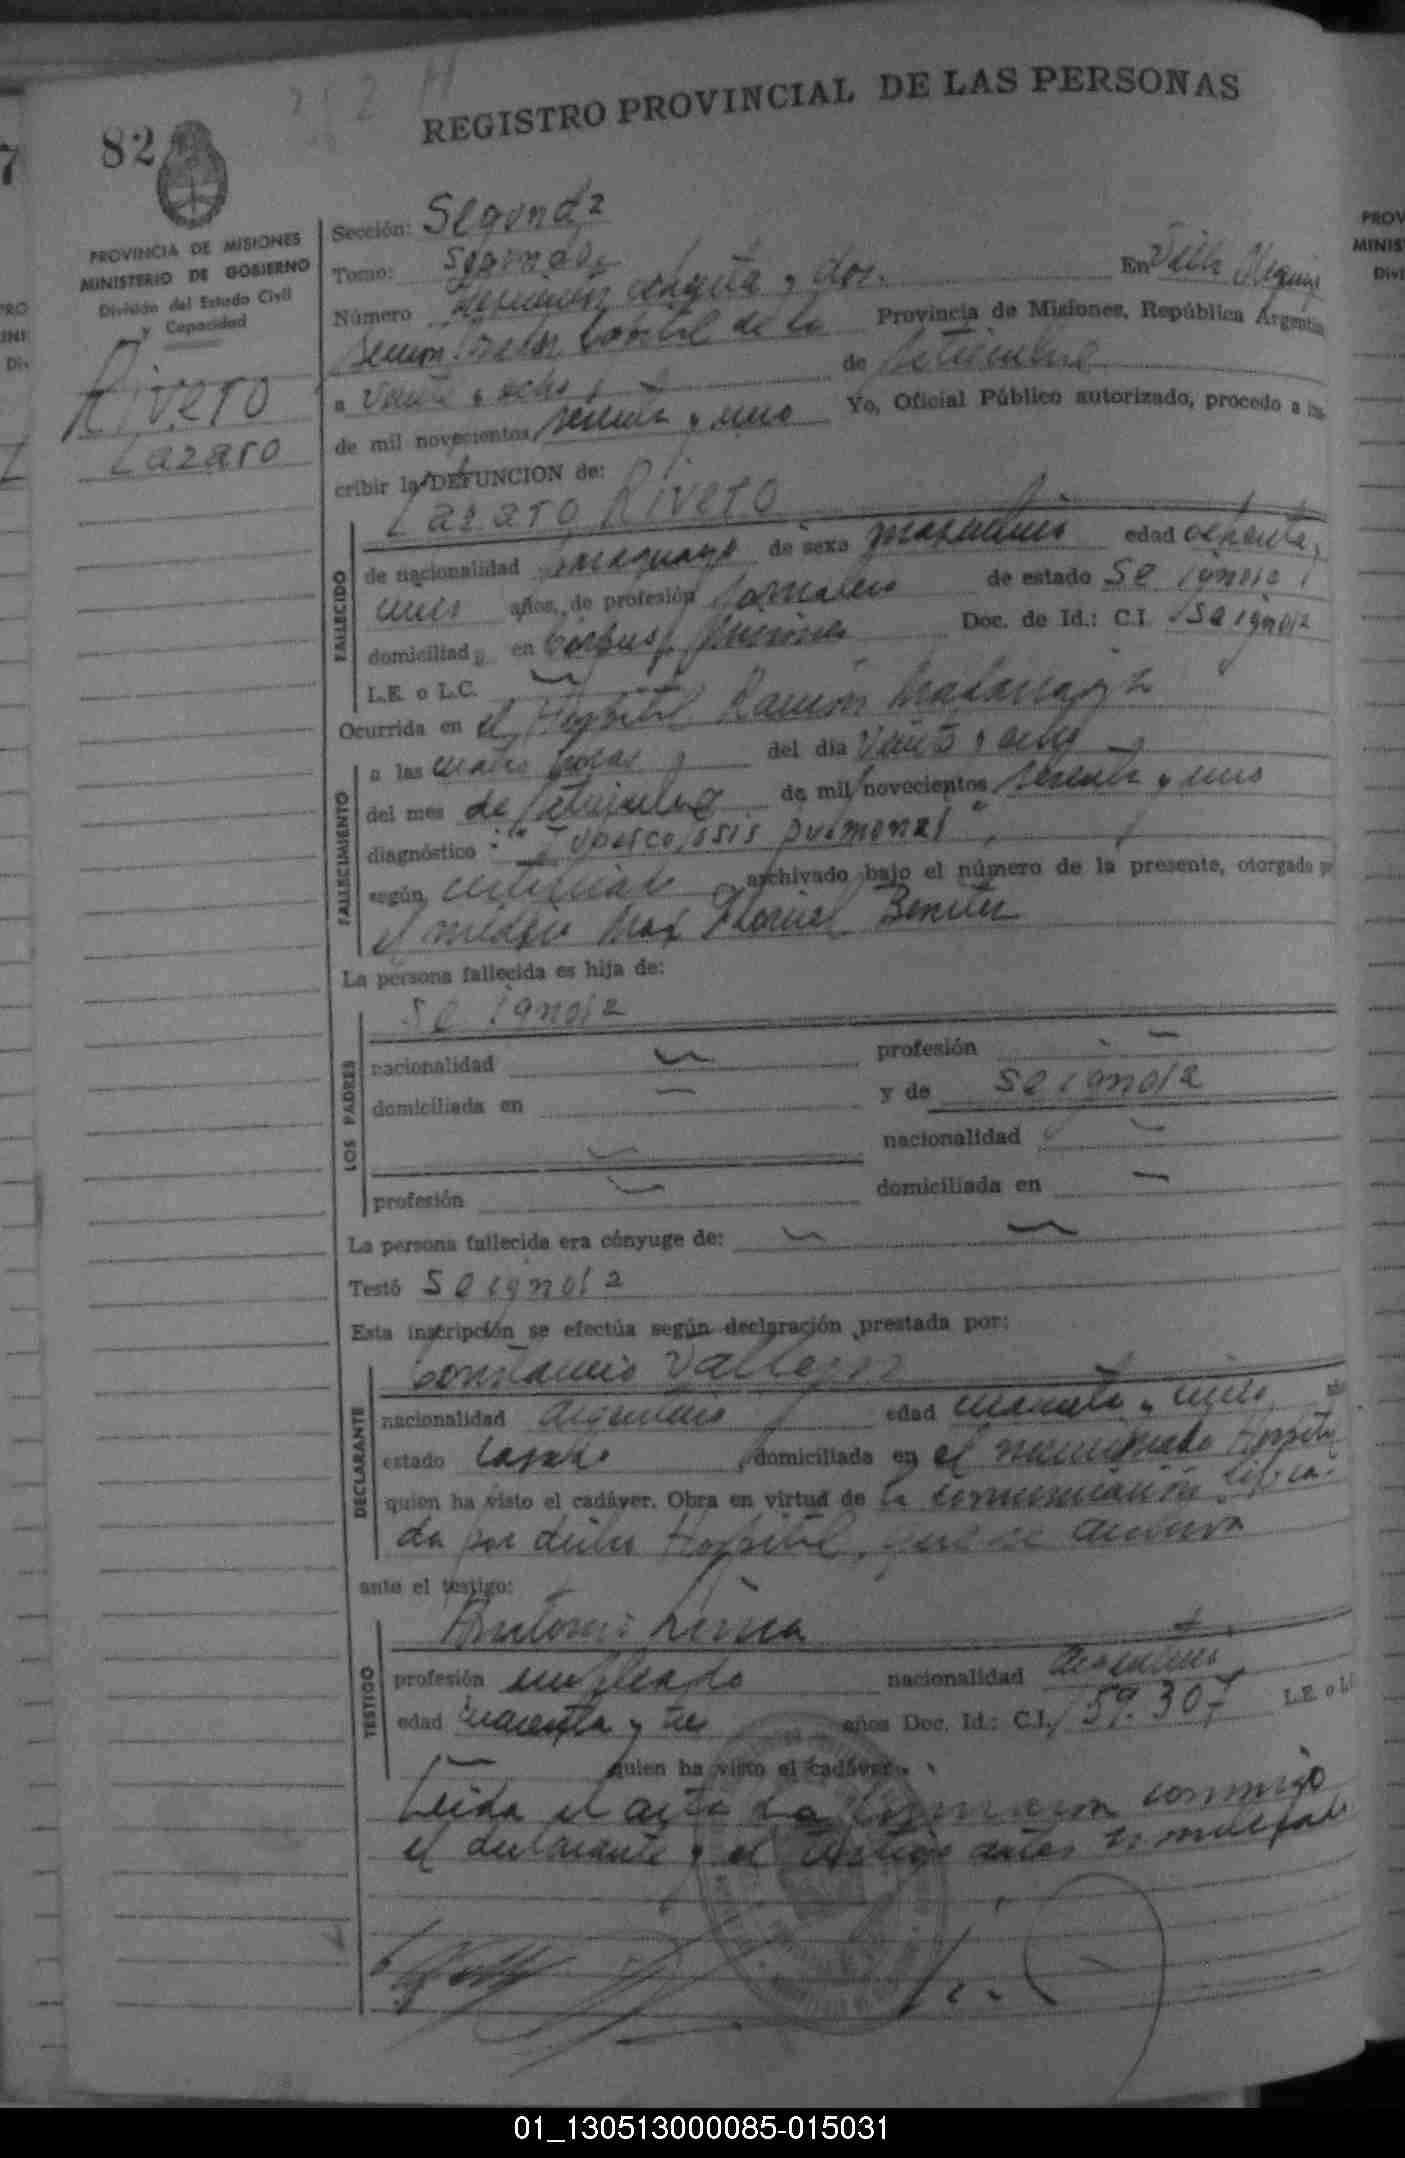 REGISTRO PROVINCIAL DE LAS PERSONAS
82
PROVINCIA DE MISIONES
MINISTERIO DE GOBIERNO
División del Estado Civil
y Capacidad
Rivero
Lazaro
Sección: Segunda
Tomo: Segundo En Villa
Número ochenta y dos.
Capital de la Provincia de Misiones, República Argentina
a veinte y ocho de setiembre
de mil novecientos sesenta y uno Yo, Oficial Público autorizado, procedo a ins-
cribir la DEFUNCION de:
Lazaro Rivero
FALLECIDO
de nacionalidad paraguayo de sexo masculino edad ochenta y
uno años, de profesión Jornalero de estado se ignora
domiciliado en Corpus, Misiones Doc. de Id.: C.I. se ignora
L.E. o L.C.
Ocurrida en el Hospital Ramón Madariaga
FALLECIMIENTO
a las cuatro horas del día veinte y ocho
del mes de setiembre de mil novecientos sesenta y uno
diagnóstico: "Tuberculosis pulmonar"
según certificado archivado bajo el número de la presente, otorgado por
el médico Max Benitez
La persona fallecida es hija de:
LOS PADRES
se ignora
nacionalidad profesión
domiciliada en y de se ignora
nacionalidad
profesión domiciliada en
La persona fallecida era cónyuge de:
Testó se ignora
Esta inscripción se efectúa según declaración prestada por:
DECLARANTE
Constancio Vallejos
nacionalidad argentino edad cuarenta y cinco
estado casado, domiciliada en el mencionado Hospital
quien ha visto el cadáver. Obra en virtud de la comunicación
da por dicho Hospital, que se archiva
ante el testigo:
TESTIGO
Antonio
profesión empleado nacionalidad argentino
edad cuarenta y tres años Doc. Id.: C.I. 59.307 L.E. o L.C.
quien ha visto el cadáver.
Leida el acta la conmigo
el declarante y el testigo antes
01_130513000085-015031